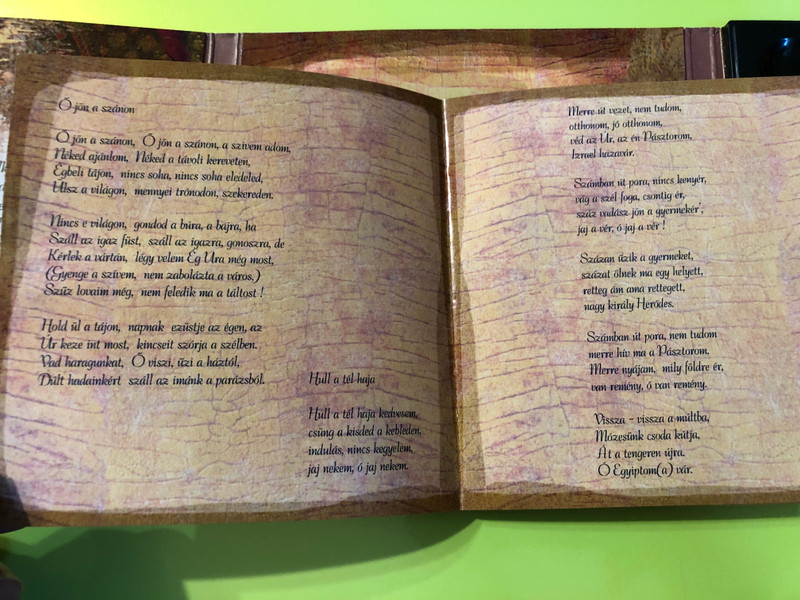 Ő jön a szánon
Ő jön a szánon, Ő jön a szánon, a szívem adom,
Néked ajánlom, Néked a távoli kereveten,
Égbeli tájon, nincs soha, nincs soha eleled,
Ülsz a világon, mennyei trónodon, szekereden.
Nincs e világon, gondod a búra, a bajra, ha
Száll az igaz füst, száll az igazra, gonoszra, de
Kérlek a vártán, légy velem Ég Ura még most,
(Gyenge a szívem, nem zabolázta a város,)
Szűz lovaim még, nem feledik ma a táltost !
Hold ül a tájon, napnak ezüstje az égen, az
Úr keze int most, kincseit szórja a szélben.
Vad haragunkat, Ő viszi, űzi a háztól,
Dúlt hadainkért száll az imánk a parázsból.
Hull a tél haja
Hull a tél haja kedvesem,
csüng a kisded a kebleden,
indulás, nincs kegyelem,
jaj nekem, ó jaj nekem.
Merre út vezet, nem tudom,
otthonom, jó otthonom,
véd az Úr, az én Pásztorom,
Izrael házavár.
Számban út pora, nincs kenyér,
vág a szél foga, csontig ér,
száz vadász jön a gyermekér',
jaj a vér, ó jaj a vér !
Százan űzik a gyermeket,
százat ölnek ma egy helyett,
retteg ám ama rettegett,
nagy király Heródes.
Számban út pora, nem tudom
merre hív ma a Pásztorom,
Merre nyájam, mily földre ér,
van remény, ó van remény.
Vissza - vissza a múltba,
Mózesünk csoda kútja,
Át a tengeren újra,
Ó Egyiptom(a) vár.